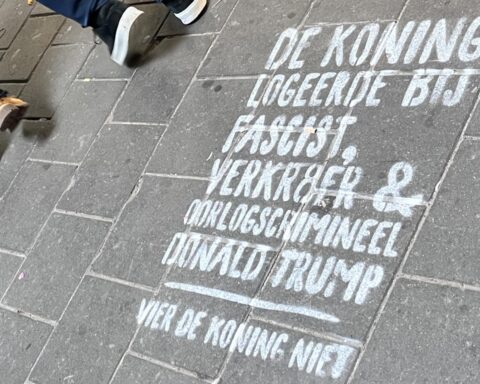 DE KONING
LOGEERDE BIJ
FASCIST,
VERKR8ER &
OORLOGSCRIMINEEL
DONALD TRUMP
VIER DE KONING NIET